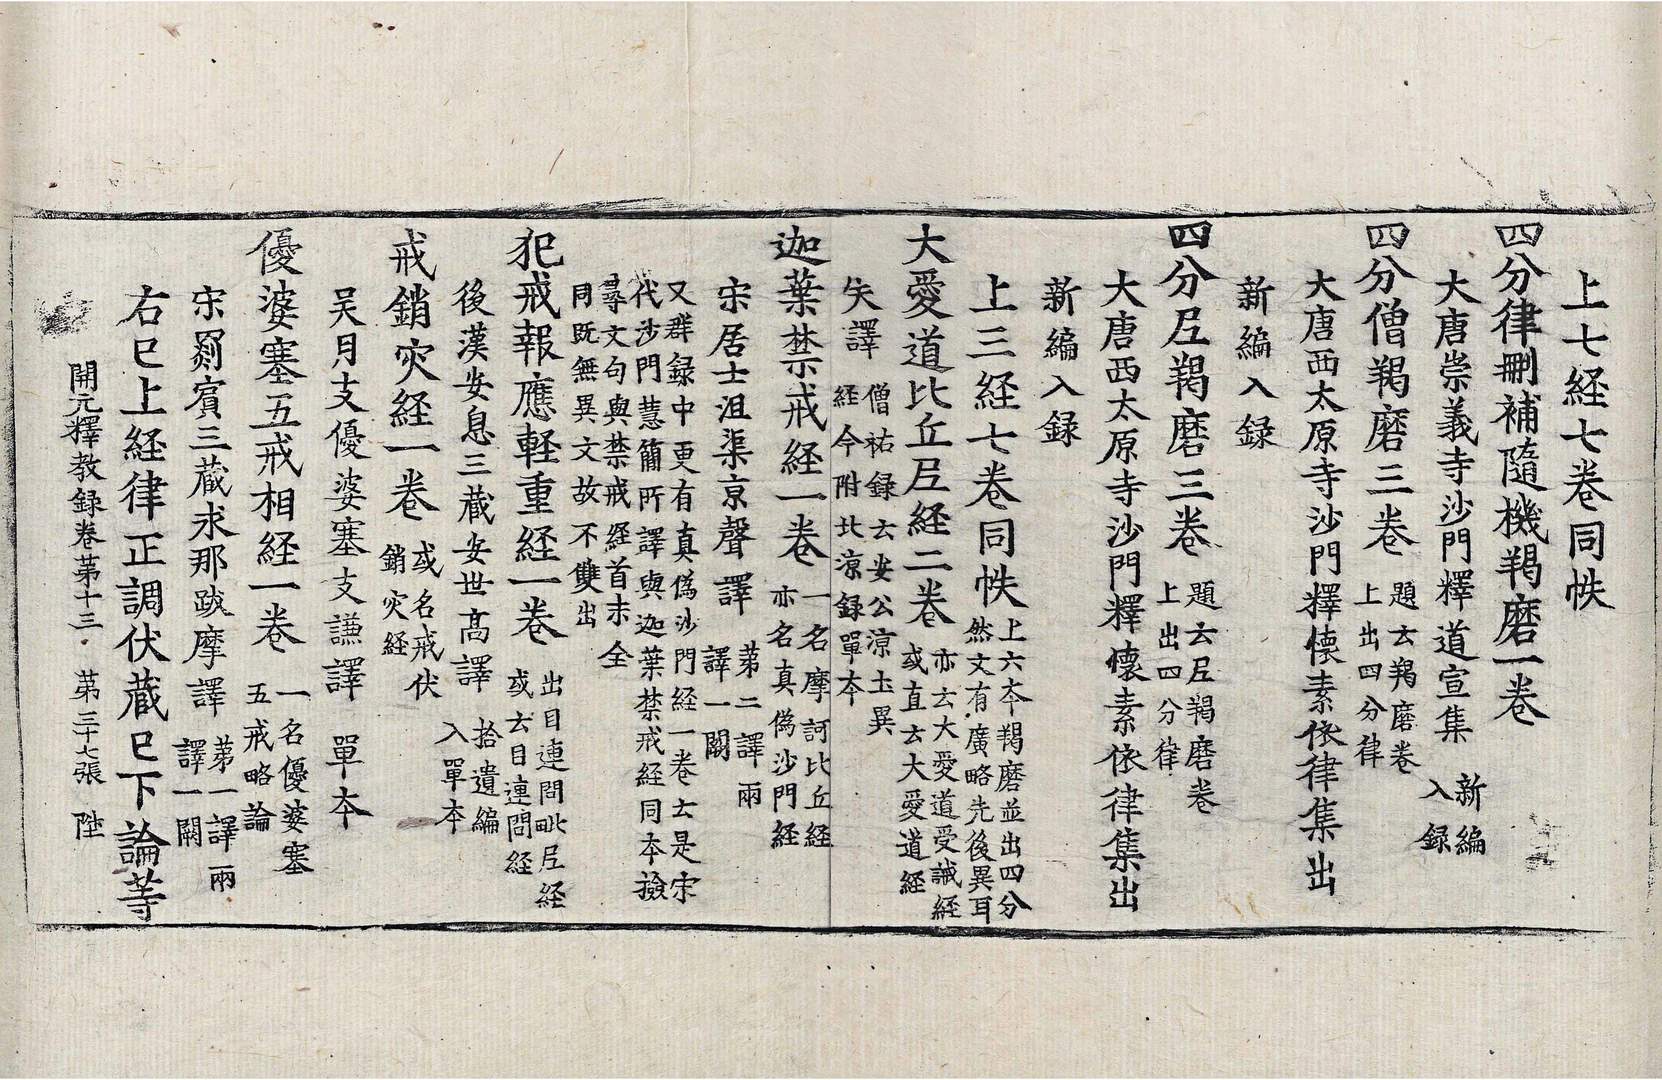 上七経七巻同帙
四分律刪補隨機羯磨一巻
大唐崇義寺沙門釋道宣集 新編
入録
四分僧羯磨三巻 題云羯磨卷
上出四分律
大唐西太原寺沙門釋懐素依律集出
新編入録
四分尼羯磨三巻 題云尼羯磨卷
上出四分律
大唐西太原寺沙門釋懐素依律集出
新編入録
上三経七巻同帙 上六夲羯磨並出四分
然文有廣略先後異耳
大愛道比丘尼経二巻 亦云大愛道受誡経
或直云大愛道経
失譯 僧祐録云安公涼土異
経今附北涼録單夲
迦葉禁戒経一巻 一名摩訶比丘経
亦名真偽沙門経
宋居士沮渠京聲譯 苐二譯兩
譯一闕
又群録中更有真偽沙門経一巻云是宋
代沙門慧簡所譯與迦葉禁戒経同夲撿
尋文句與禁戒経首末全
同既無異文故不雙出
犯戒報應軽重経一巻 出目連問毗尼経
或云目連問経
後漢安息三蔵安世高譯 拾遺編
入單夲
戒銷灾経一巻 或名戒伏
銷灾経
吴月支優婆塞支謙譯 單夲
優婆塞五戒相経一巻 一名優婆塞
五戒略論
宋罽賓三蔵求那跋摩譯 苐一譯兩
譯一闕
右已上経律正調伏蔵已下論等
開元釋教録卷苐十三 第三十七張 陞